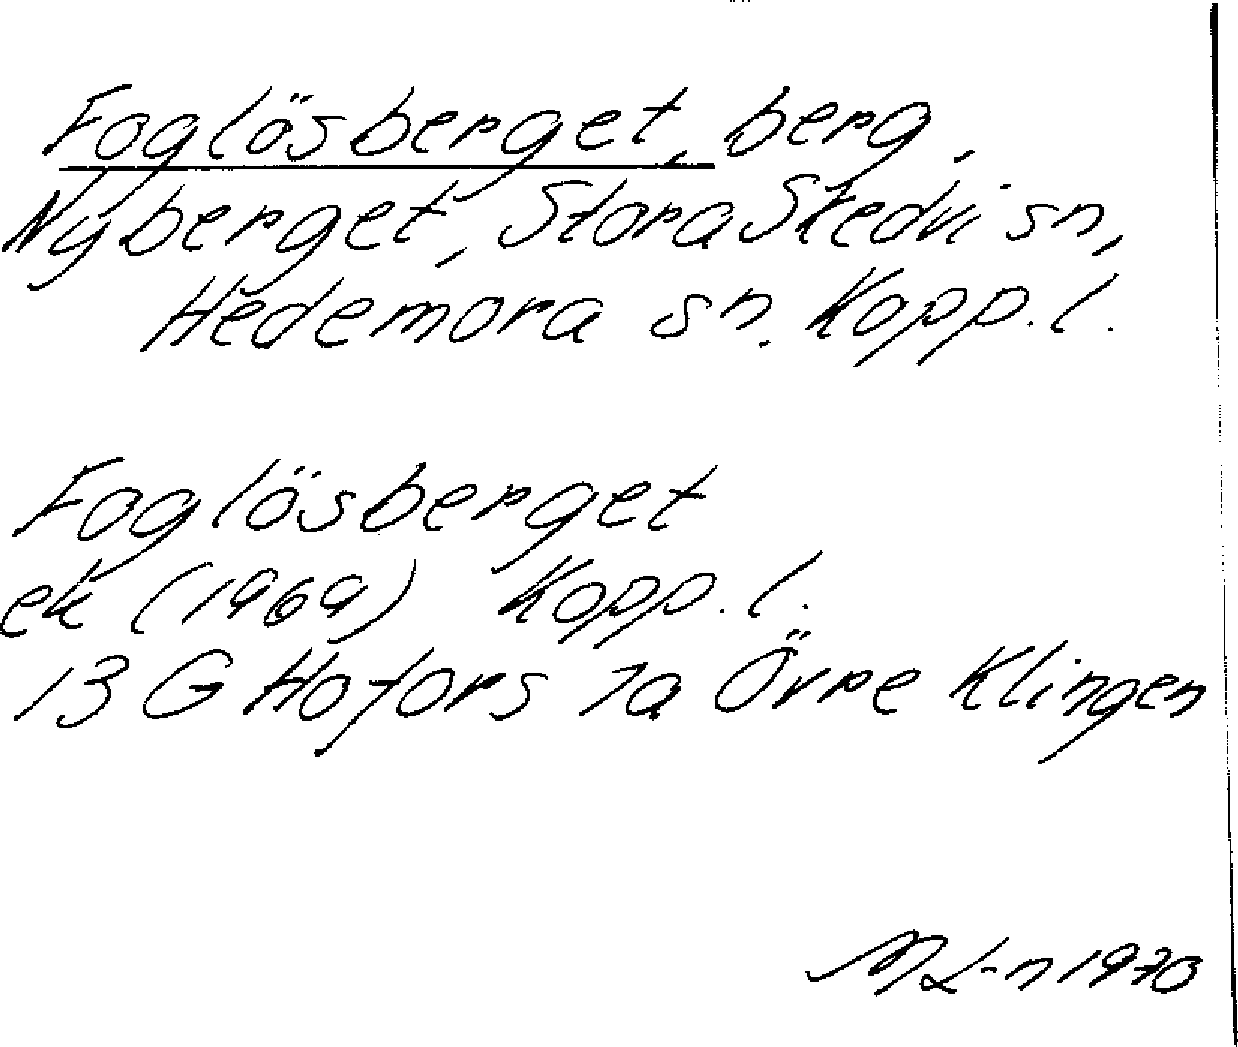 Foglösberget, berg,
Nyberget, Stora Skedvi sn,
Hedemora sn. Kopp. l.
Foglösberget
ek (1969) Kopp. l.
13 G Hofors 7a Övre Klingen
ML-n 1970